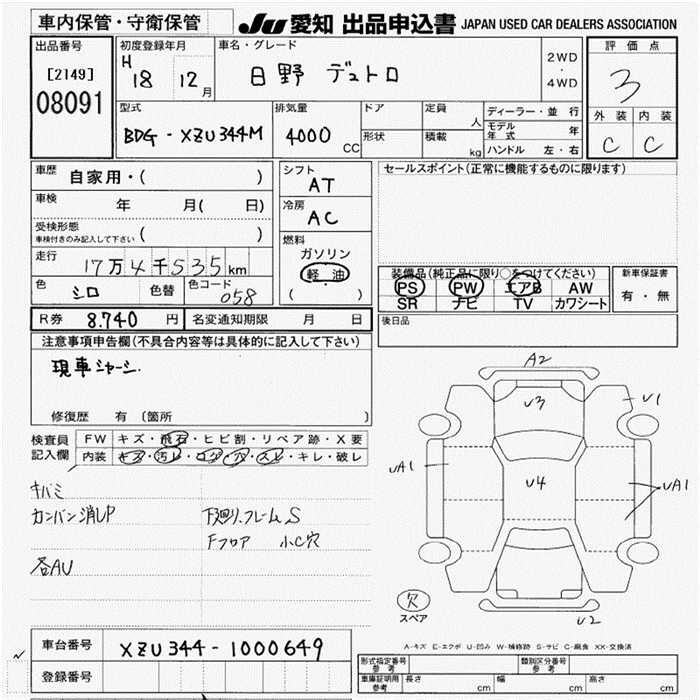 車内保管・守衛保管
JU 愛知 出品申込書 JAPAN USED CAR DEALERS ASSOCIATION
出品番号
[2149]
08091
初度登録年月
H18 12月
車名・グレード
日野 デュトロ
2WD
・
4WD
評価点
3
外装 内装
C C
型式
BDG-XZU344M
排気量
4000 CC
ドア
形状
定員 人
積載 kg
ディーラー・並行
モデル年式 年
ハンドル 左・右
車歴 自家用・( )
車検 年 月( 日)
受検形態
車検付きのみ記入して下さい ( )
走行 17万4千535km
色 シロ 色替 色コード 058
シフト
AT
冷房
AC
燃料
ガソリン
軽油
( ・ )
セールスポイント(正常に機能するものに限ります)
装備品(純正品に限り○をつけてください)
PS PW エアB AW
SR ナビ TV カワシート
新車保証書
有・無
後日品
R券 8.740 円 名変通知期限 月 日
注意事項申告欄(不具合内容等は具体的に記入して下さい)
現車ジャージ
修復歴 有 〔箇所 〕
検査員記入欄
FW キズ・飛石・ヒビ割・リペア跡・X要
内装 キズ・汚レ・コゲ・穴・スレ・キレ・破レ
キバミ
カンバン消UP
下廻リ、フレームS
Fフロア 小C穴
各AU
A2
U3
U1
UA1
U4
UA1
U2
欠
スペア
A-キズ E-エクボ U-凹み W-補修跡 S-サビ C-腐食 XX-交換済
車台番号 XZU344-1000649
登録番号
形式指定番号参考
類別区分番号参考
車庫証明用参考 長さ cm 幅 cm 高さ cm